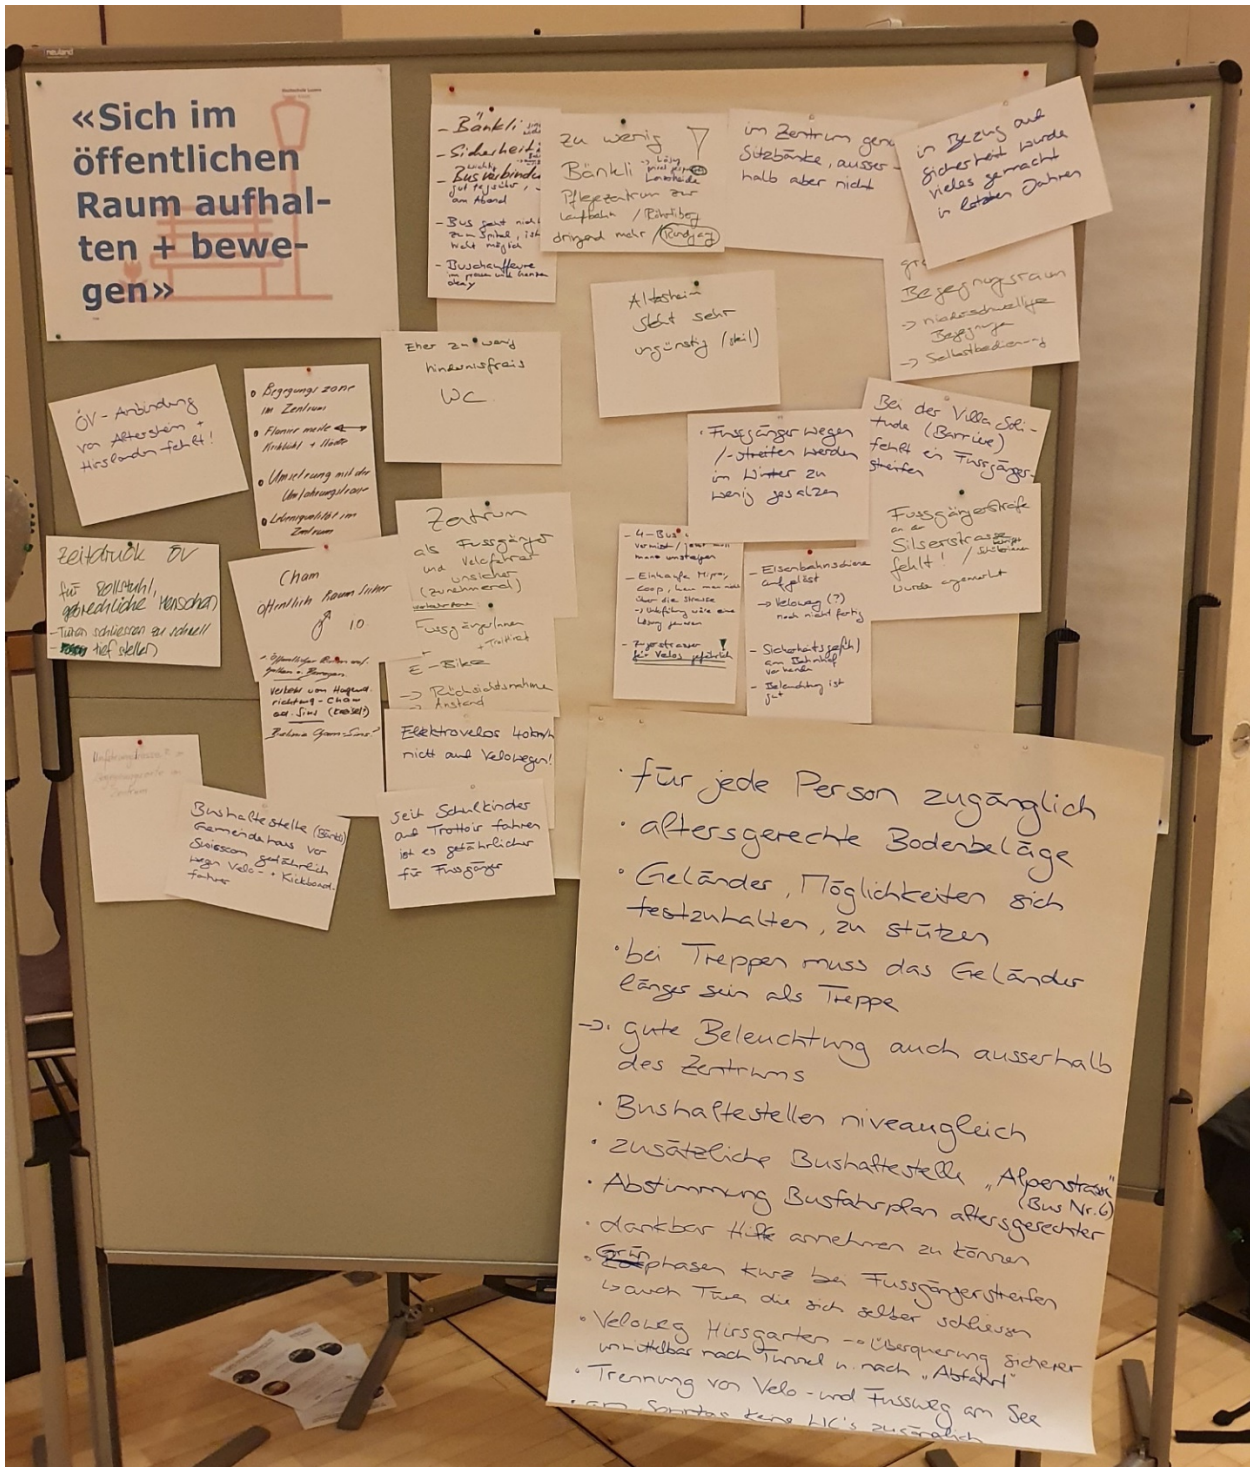 neuland
«Sich im
öffentlichen
Raum aufhal-
ten + bewe-
gen»
Hochschule Luzern
- Bänkli
- Sicherheit
- Busverbindun
am Abend
- Bus geht nicht
zum Spital, ist
nicht möglich
- Buschauffeure
okay
zu wenig
Bänkli
Pflegezentrum zur
dringend mehr / Rundgang
im Zentrum genu
Sitzbänke, ausser-
halb aber nicht
in Bezug auf
Sicherheit wurde
vieles gemacht
in letzten Jahren
Begegnungsraum
-> niederschwellige
Begegnungen
-> Selbstbedienung
Altersheim
steht sehr
ungünstig (steil)
Eher zu wenig
hindernisfreis
WC
ÖV-Anbindung
von Altersheim +
Hirslanden fehlt!
• Begegnungszone
im Zentrum
• Flaniermeile
• Umsetzung mit der
Umfahrungstrasse
• Lebensqualität im
Zentrum
· Fussgängerwegen
/-streifen werden
im Winter zu
wenig gesalzen
Bei der Villa Soli-
tude (Barriere)
fehlt ein Fussgänger-
streifen
Fussgängerstreife
an der
Silserstrasse
fehlt!
wurde angemerkt
Zeitdruck ÖV
für Rollstuhl,
gebrechliche Menschen
- Türen schliessen zu schnell
tief stellen
Cham
öffentlich Raum
I.O.
Zentrum
als Fussgänger
und Velofahrer
unsicher
(zunehmend)
FussgängerInnen
+ Trottinet
E-Bike
-> Rücksichtsnahme
Anstand
- 4-Bus
vermisst / jetzt
umsteigen
- Einkaufe Migro,
Coop,
über die Strasse
-> Unterführung wäre eine
Lösung gewesen
- Zugerstrasse
für Velos gefährlich
- Eisenbahnschiene
aufgelöst
-> Veloweg (?)
noch nicht fertig
- Sicherheitsgefühl
am Bahnhof
vorhanden
- Beleuchtung ist
gut
Verkehr von
richtung - Cham
(Kreisel)
Elektrovelos 40km/h
nicht auf Velowegen!
im
Zentrum
Bushaltestelle (Bänkli)
Gemeindehaus vor
Swisscom gefährlich
wegen Velo- + Kickboard-
fahrer
seit Schulkinder
auf Trottoir fahren
ist es gefährlicher
für Fussgänger
· für jede Person zugänglich
· altersgerechte Bodenbeläge
· Geländer, Möglichkeiten sich
festzuhalten, zu stützen
· bei Treppen muss das Geländer
länger sein als Treppe
-> · gute Beleuchtung auch ausserhalb
des Zentrums
· Bushaltestellen niveaugleich
· zusätzliche Bushaltestelle „Alpenstrasse"
(Bus Nr. 6)
· Abstimmung Busfahrplan altersgerechter
· dankbar Hilfe annehmen zu können
· Grünphasen kurz bei Fussgängerstreifen
↳ auch Türen die sich selber schliessen
· Veloweg Hirsgarten -> Überquerung sicherer
unmittelbar nach Tunnel u. nach „Abfahrt"
· Trennung von Velo- und Fussweg am See
· am Sonntag keine WC's zugänglich